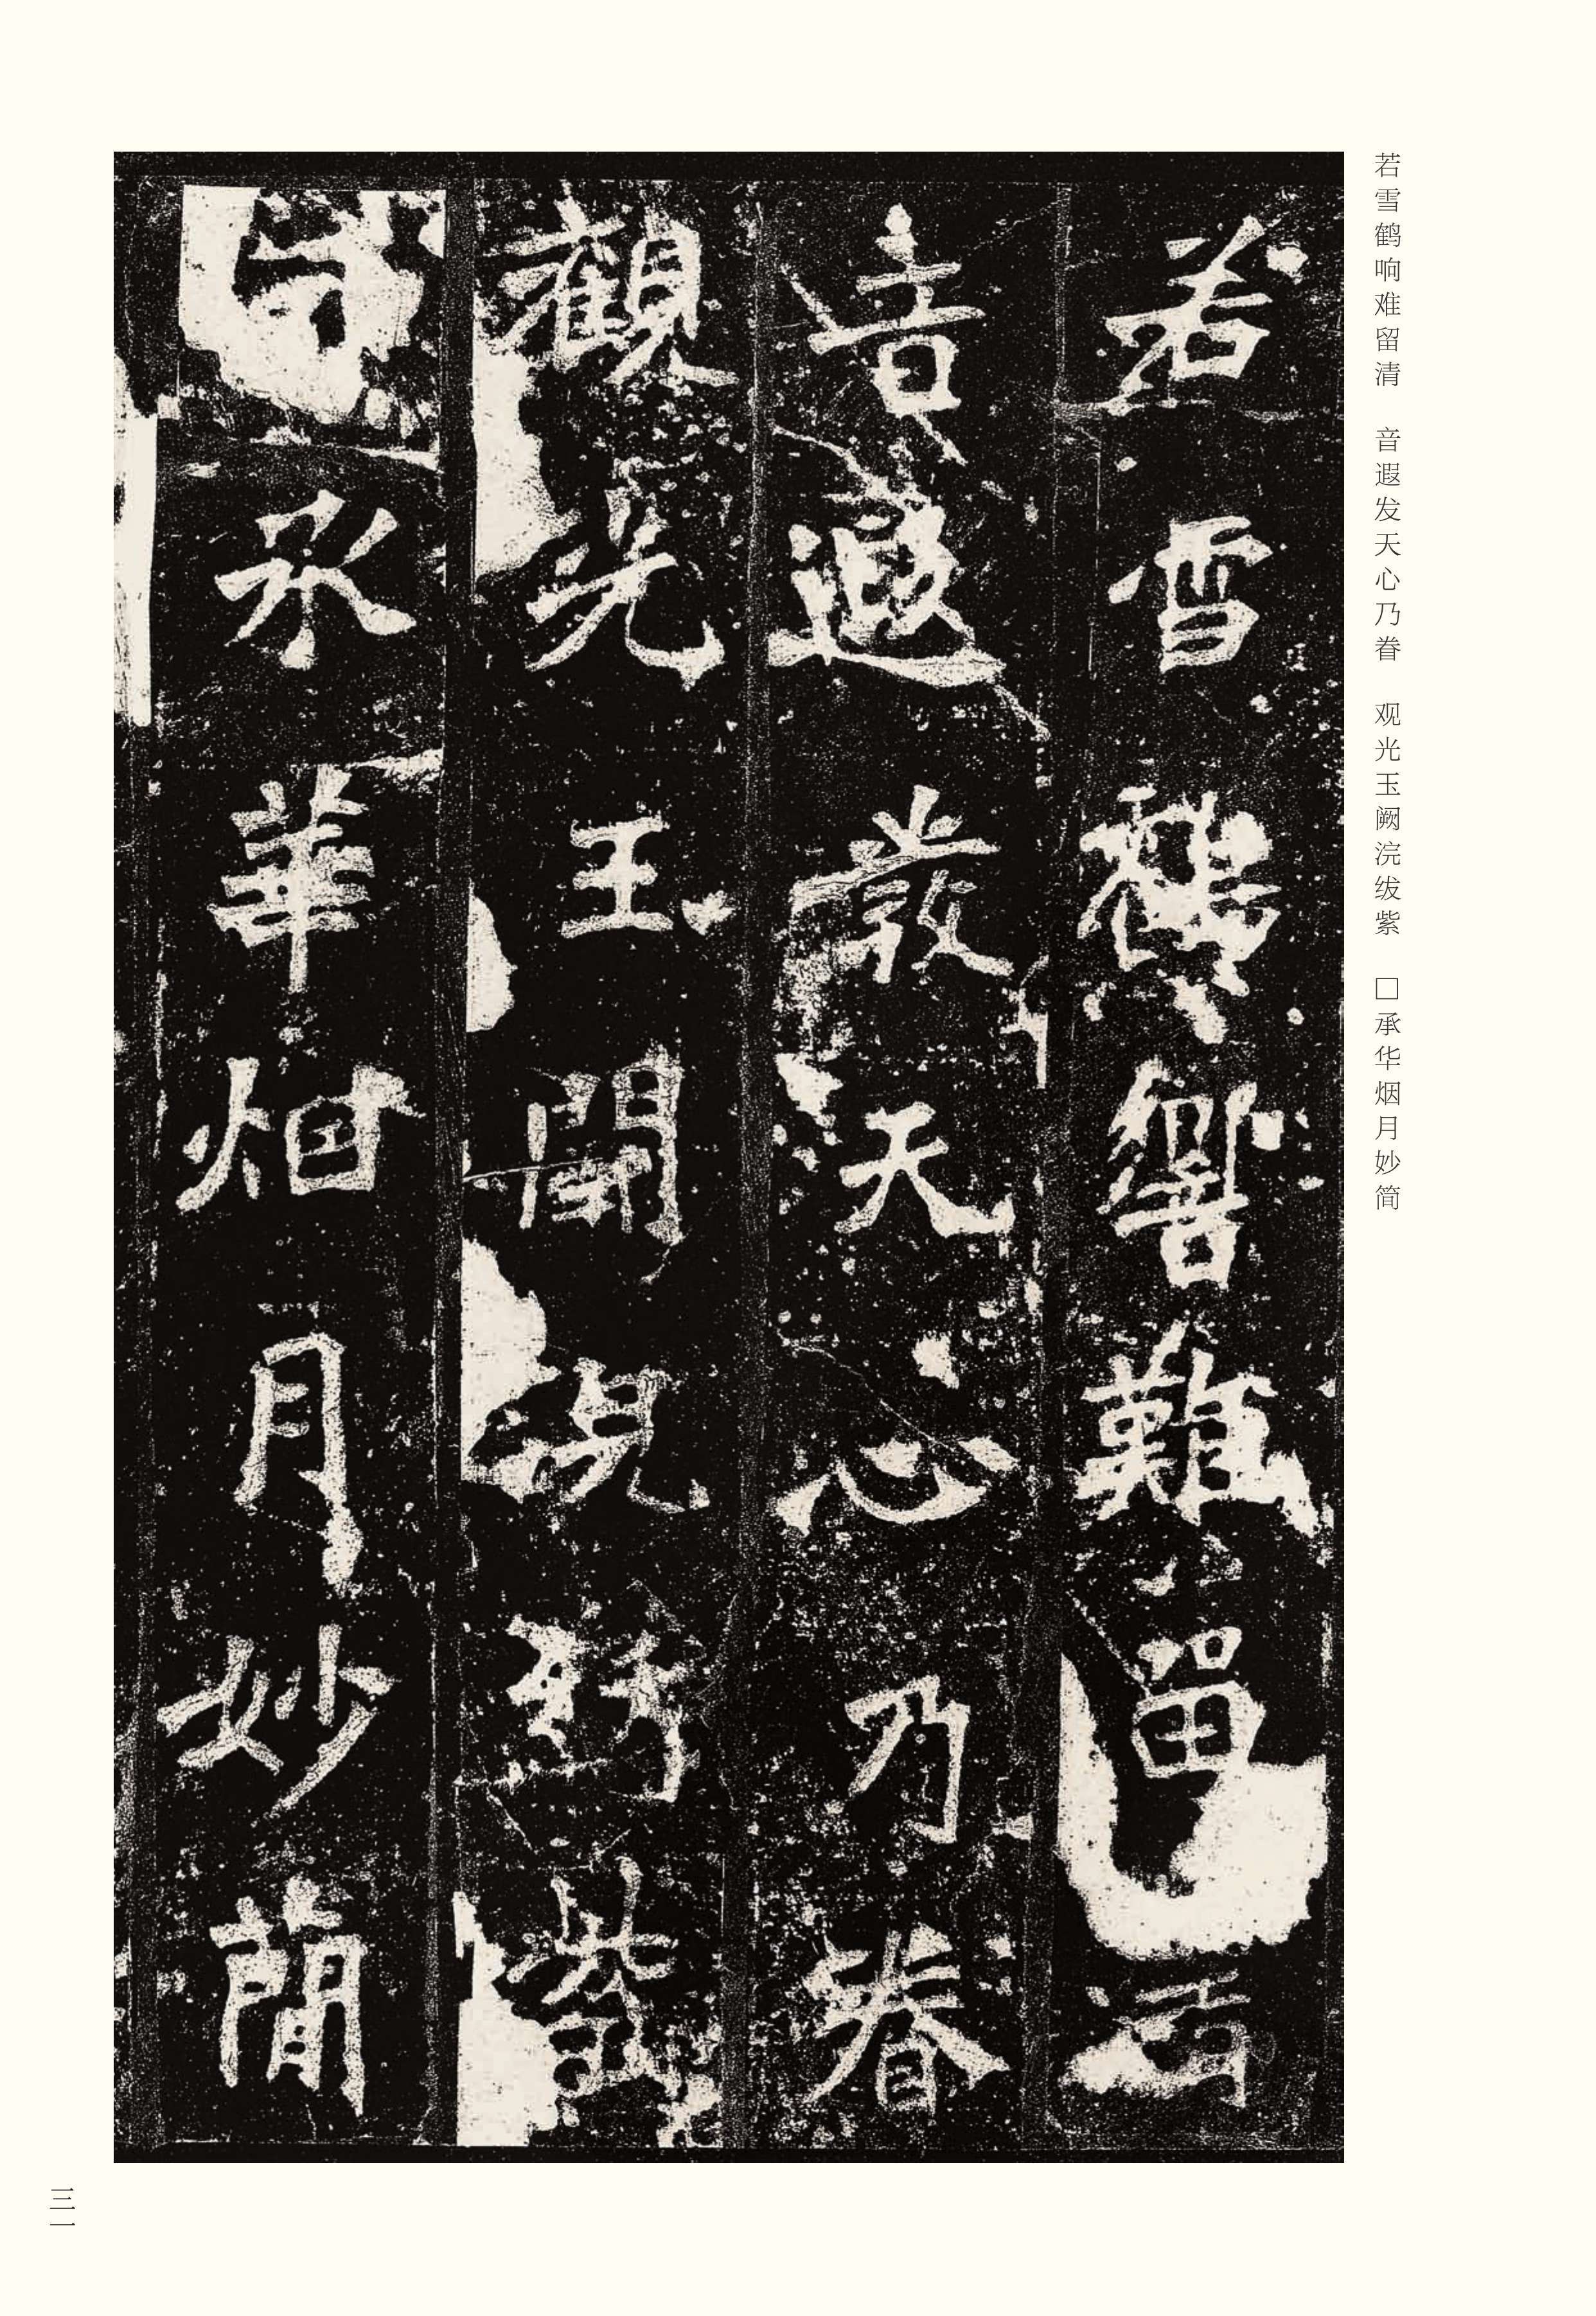 若雪鹤响难留清　音遐发天心乃眷　观光玉阙浣绂紫　□承华烟月妙简
若雪鶴響難留
音遐發天心乃眷
觀光玉紫
承華烟月妙簡
三一